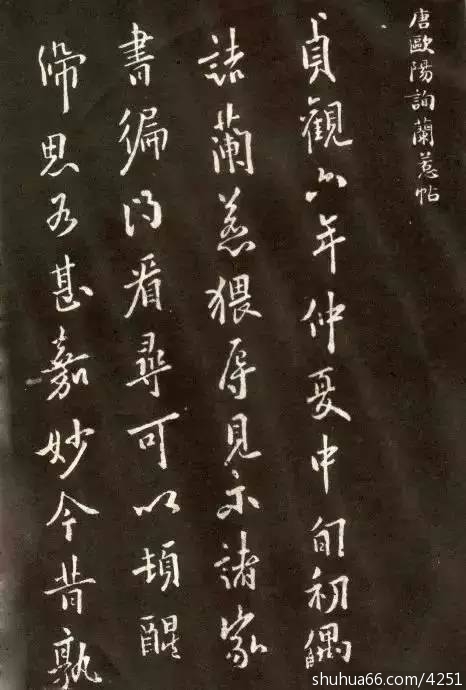 唐歐陽詢蘭惹帖
貞觀六年仲夏中旬初偶
詰蘭惹猥辱見示諸家
書徧得看尋可以頓醒
滯思為甚嘉妙今昔孰
shuhua66.com/4251